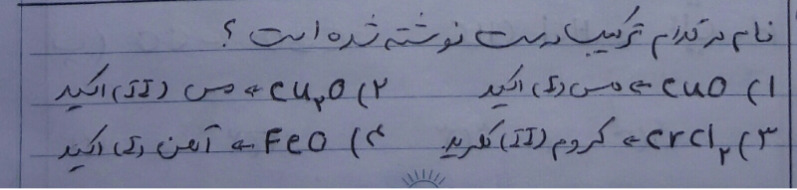 نام در کدام ترکیب درست نوشته شده است ؟
۱) CuO ← مس (I) اکسید ۲) Cu₂O ← مس (II) اکسید
۳) CrCl₂ ← کروم (II) کلرید ۴) FeO ← آهن (I) اکسید